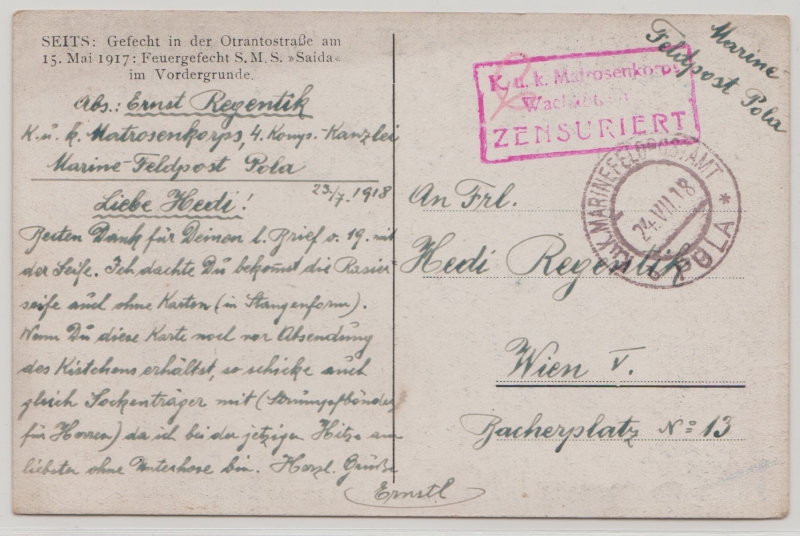 SEITS: Gefecht in der Otrantostraße am
15. Mai 1917: Feuergefecht S.M.S. »Saida«
im Vordergrunde.
Abs.: Ernst Regentik
K. u. k. Matrosenkorps, 4. Komp.-Kanzlei
Marine-Feldpost Pola
23./7. 1918
Liebe Hedi!
Besten Dank für Deinen l. Brief v. 19. mit
der Seife. Ich dachte Du bekommst die Rasier-
seife auch ohne Karten (in Stangenform).
Wenn Du diese Karte noch vor Absendung
des Kistchens erhältst, so schicke auch
gleich Sockenträger mit (Strumpfbänder
für Herren) da ich bei der jetzigen Hitze am
liebsten ohne Unterhose bin. Herzl. Grüße
Ernstl
Marine
Feldpost Pola
K. u. k. Matrosenkorps
ZENSURIERT
K.u.K. MARINEFELDPOSTAMT
24.VII.18
* POLA
An Frl.
Hedi Regentik
Wien V.
Bacherplatz No 13